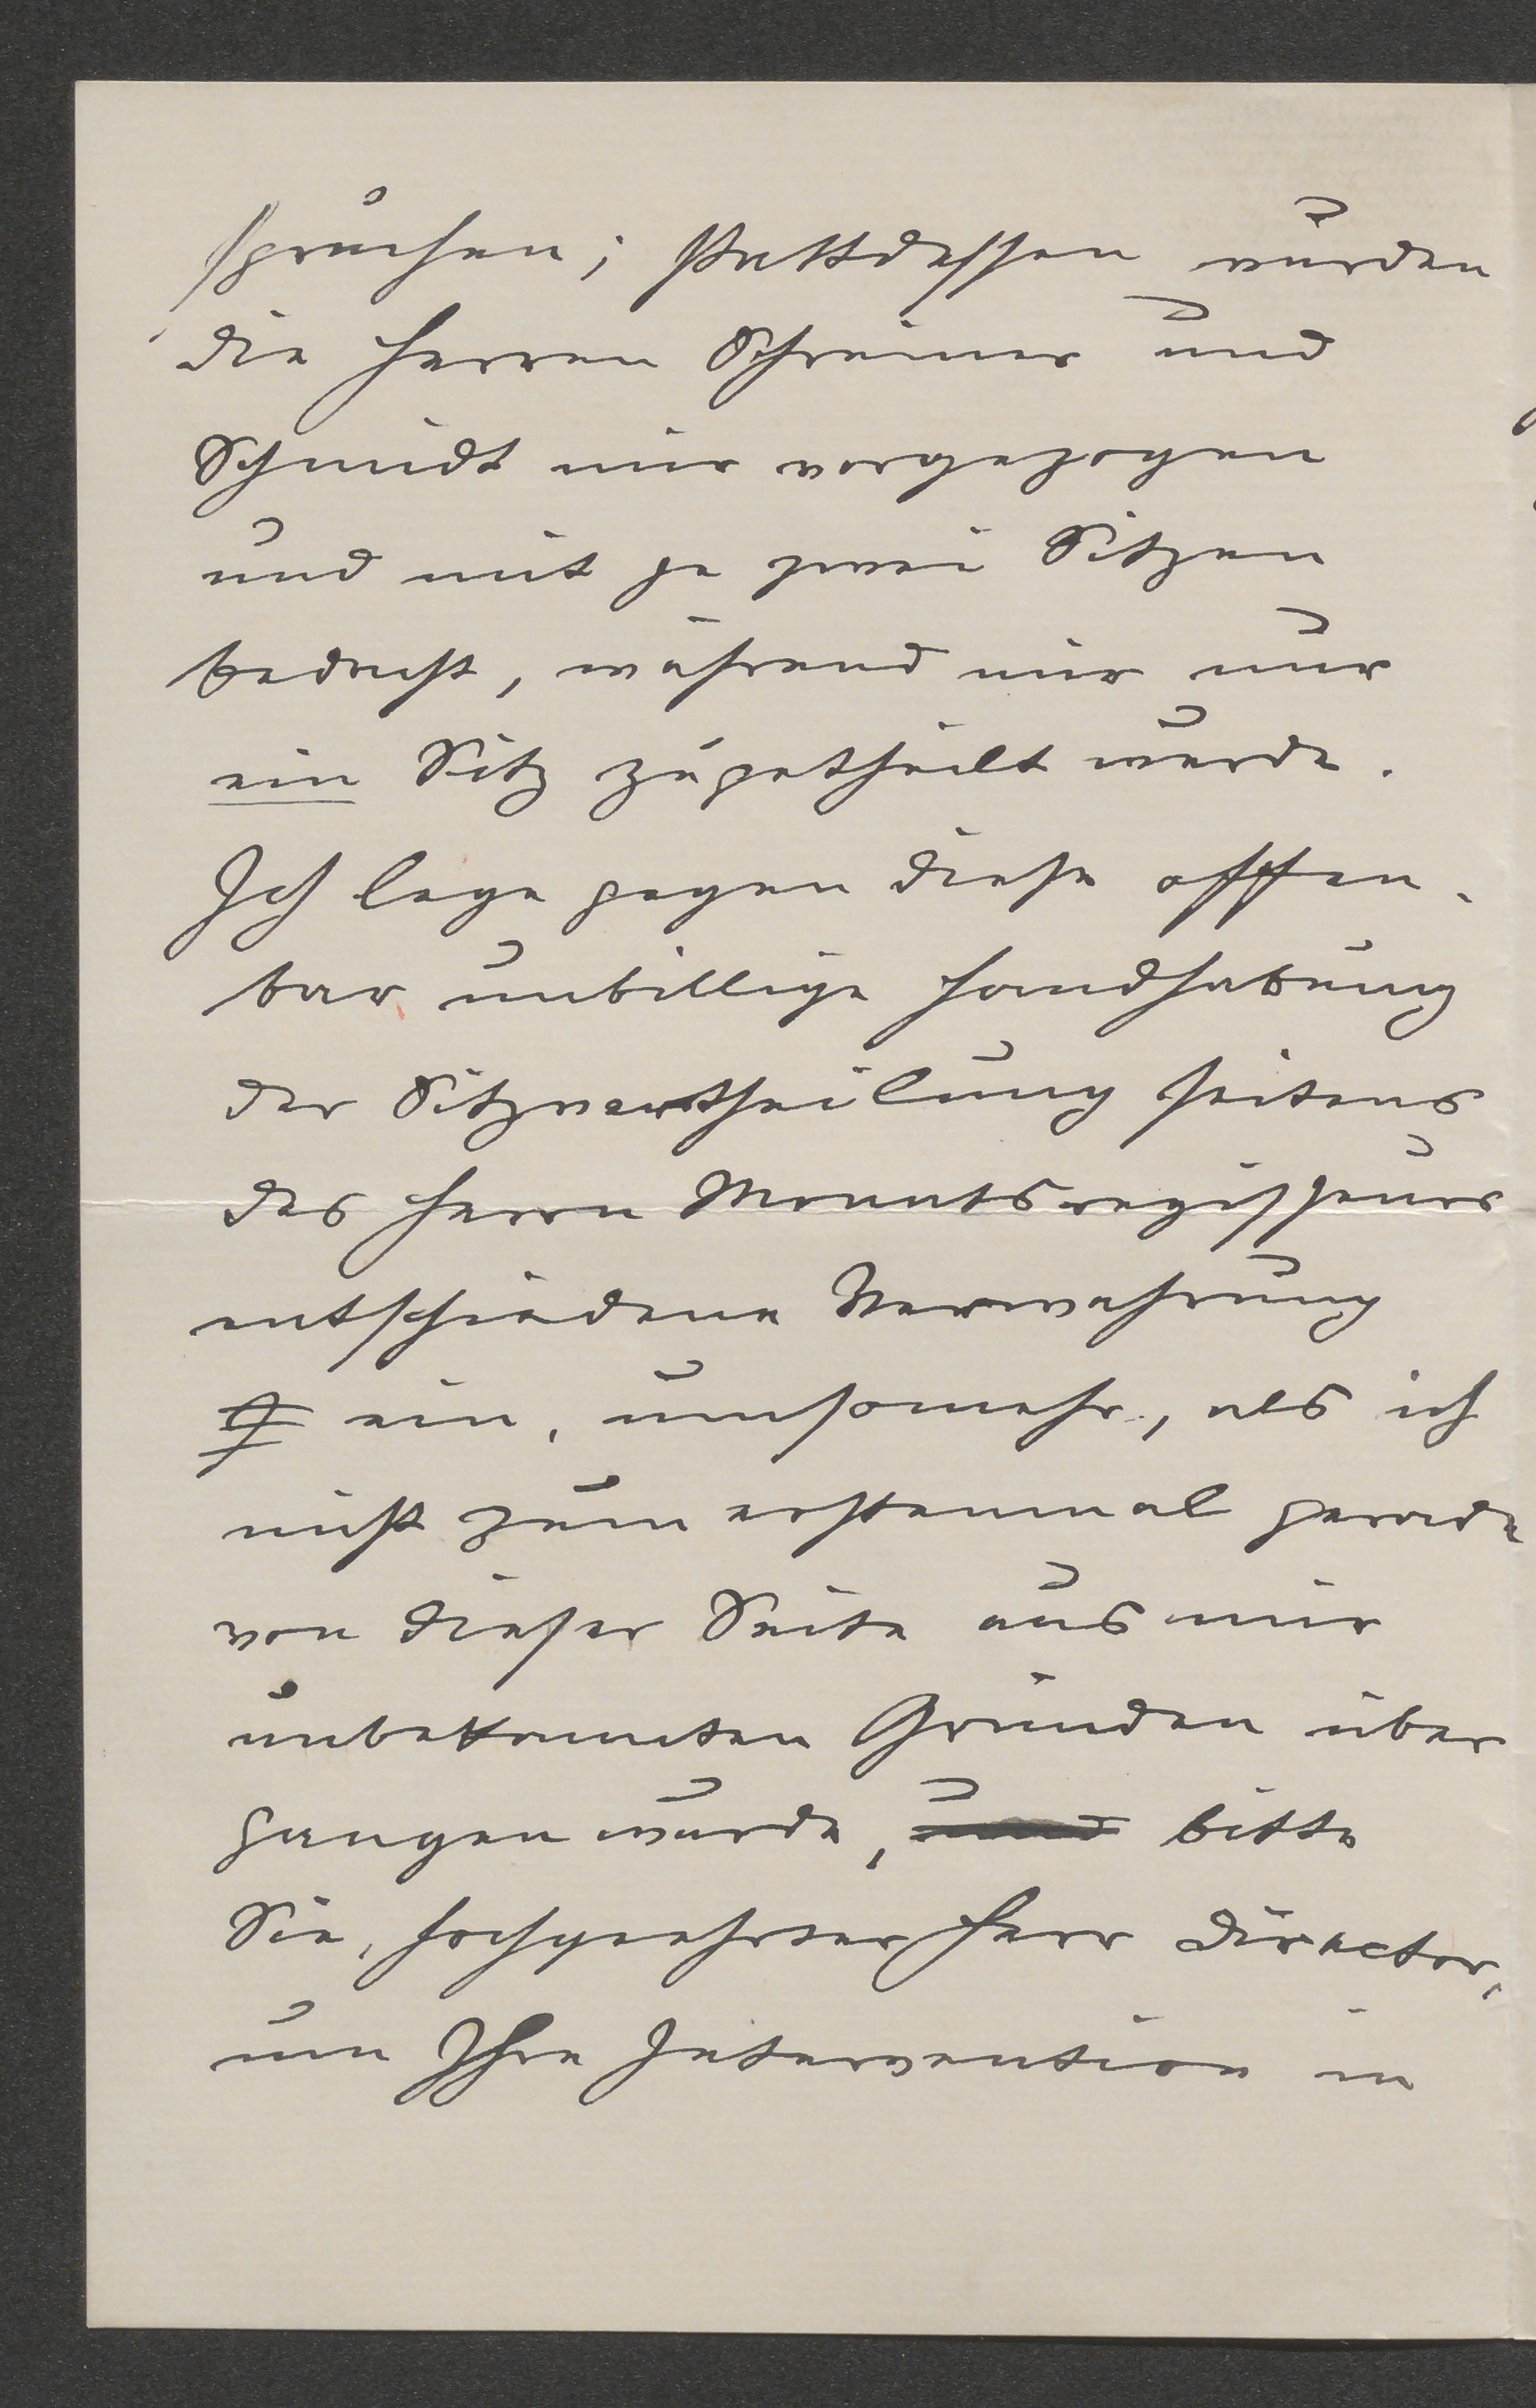 sprüchen; stattdessen wurden
die Herren Schreiner und
Schmidt mir vorgezogen
und mit je zwei Sitzen
bedacht, während mir nur
ein Sitz zugetheilt wurde.
Ich lege gegen diese offen-
bar unbillige Handhabung
der Sitzvertheilung seitens
des Herrn Monatsregisseurs
entschiedene Verwahrung
ein, umsomehr, als ich
nicht zum erstenmal gerade
von dieser Seite aus mir
unbekannten Gründen über
gangen wurde, und bitte
Sie, hochgeehrter Herr Director,
um Ihre Intervention in